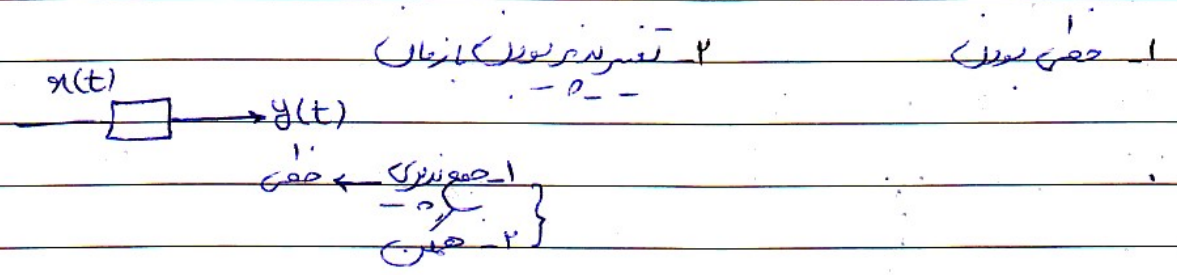 ۱- خطی بودن ۲- تغییرپذیر بودن با زمان
x(t)
y(t)
۱- جمع پذیری ← خطی
۲- همگن